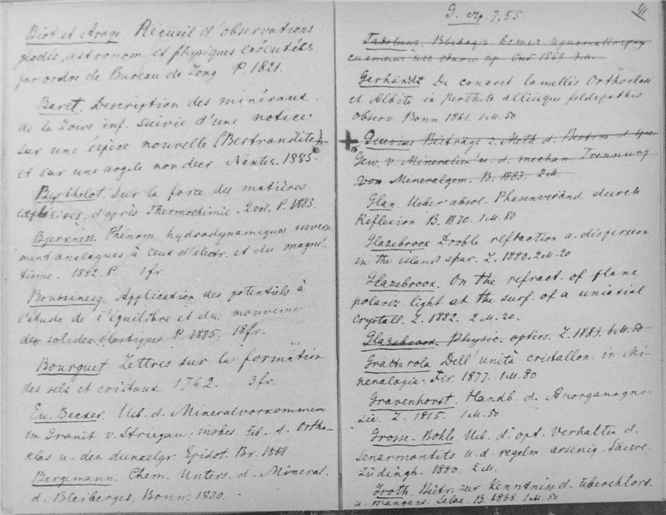 Biot et Arago. Recueil d'observations
géodés, astronom. et physiques exécutées
par ordre de Bureau de Long. P. 1821.
Baret. Description des minéraux
de la Loire inf. Suivie d'une notice
sur une espèce nouvelle (Bertrandite)
et sur une argile Nantes. 1885
Berthelot. Sur la force des matières
explosives, d'après thermochimie. 2 vol. P. 1883.
Bjerkness. Phénom. hydrodynamiques inverse-
ment analogues à ceux d'électr. et du magné-
tisme. 1882. P. 1 fr.
Boussinesq. Application des potentiels à
l'étude de l'équilibre et du mouvem
des solides élastiques P. 1885. 18 fr.
Bourguet. Lettres sur la formation
des sels et cristaux 1762. 3 fr.
Ew. Becker. Ueb. d. Mineralvorkommen
im Granit v. Striegau, insbes. üb. d. Ortho-
klas u. den dunkelgr. Epidot. Br. 1868
Bergmann. Chem. Unters. d. Mineral.
d. Bleiberges. Bonn. 1830.
стр. 7, 55
Gerhardt. De conaret lamellis Orthoclas
et Albite in Perthite alliisque feldspathis
observ. Bonn 1861. 1 M. 50
Beiträge z. Meth. d. Bestim. d. spec.
Gew. v. Mineralien u. d. mechan. Trennung
von Mineralgem. B. 1883. 2 M.
Glan. Ueber absol. Phasenveränd. durch
Reflexion B. 1870. 1 M. 80
Glazebroox Double refraction a. dispersion
in the island spar. L. 1880. 2 M. 20
Glazebroox. On the refract. of plane
polariz light at the surf. of a uniaxial
crystall. L. 1882. 2 M. 20.
Glazebroox. Physic. optics. L. 1883. 6 M. 50
Grattarola Dell' unità cristallon. in Mi-
neralogia. Fir. 1877. 1 M. 80
Gravenhorst. Handb d. Anorganogno-
sie. L. 1815. 1 M. 50
Grosse-Bohle Ueb. d. opt. Verhalten d.
Senarmontits u. d. regelm arsenig. Säure.
Lüdingh. 1880. 2 M.
Groth. Beitr. zur Kenntniss d. überchlors.
u. mangans. Salze. B. 1868. 1 M. 50